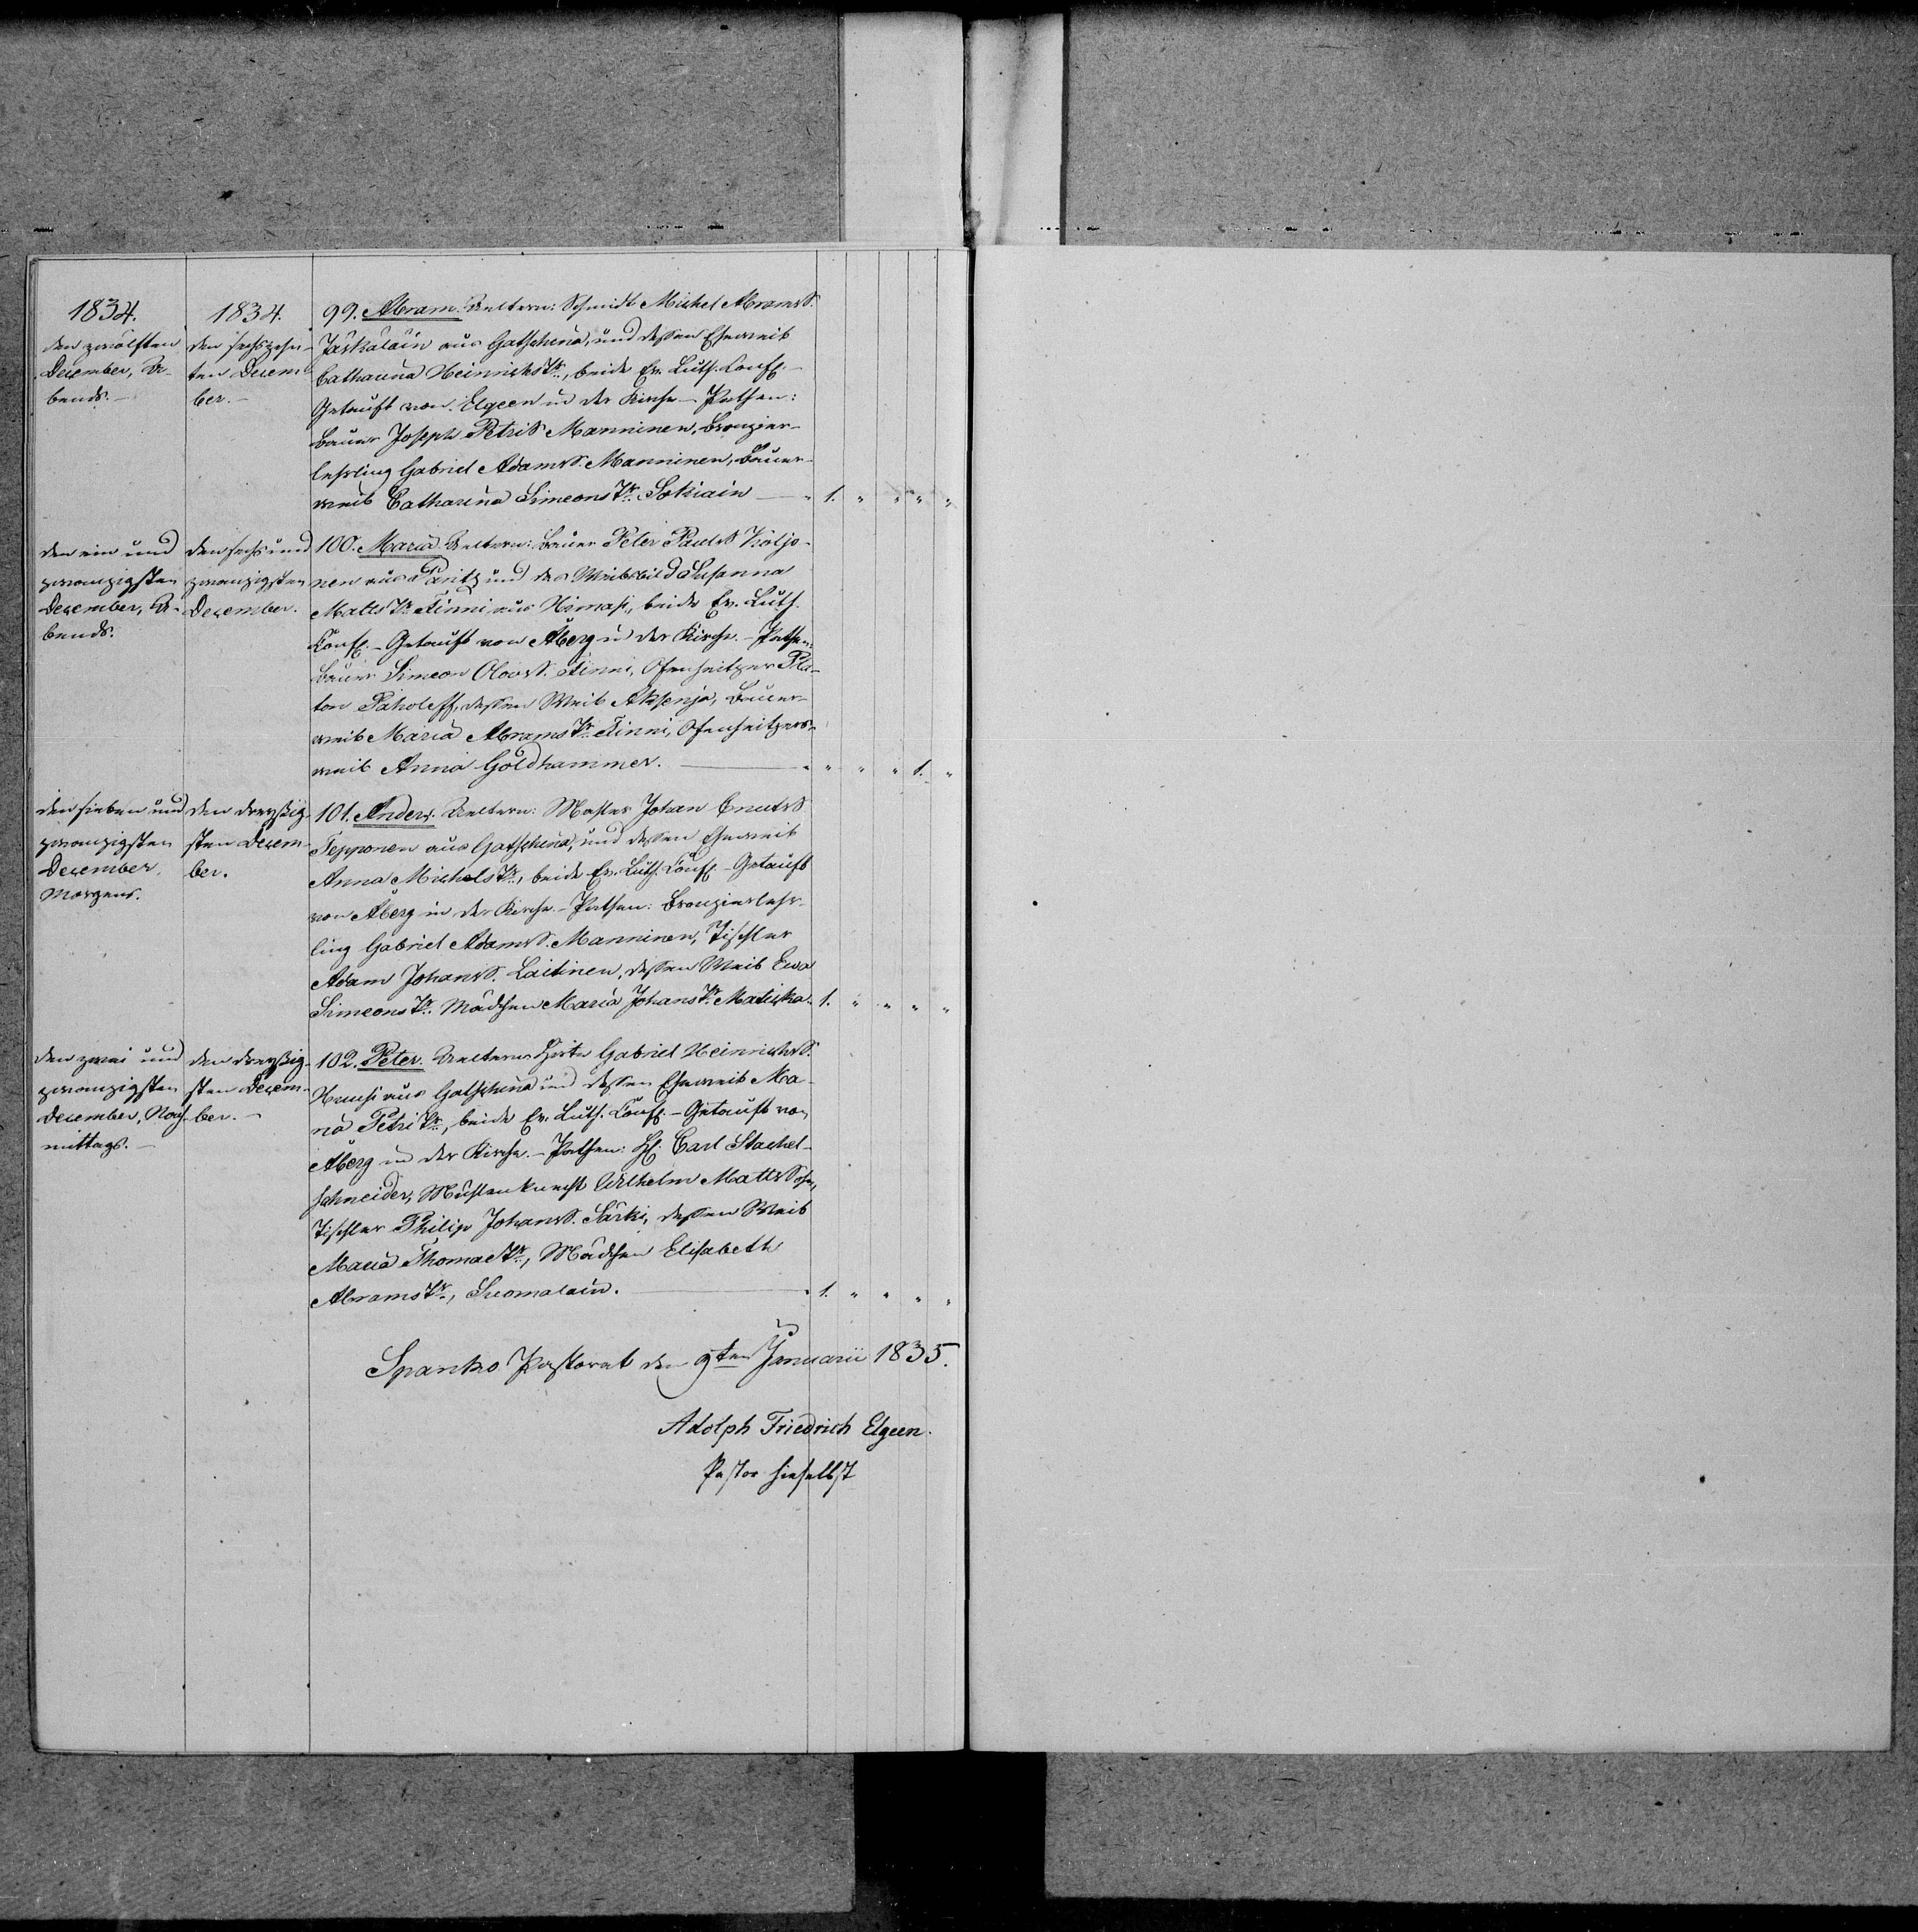 1834.
den zwölften
December, A-
bends.-
1834.
den sechszehn-
ten Decem-
ber.-
99. Abram. Aeltern: Schmidt Michel AbramsS.
Jäskäläin aus Gatschina, und dessen Eheweib
Catharina HeinrichsTr., beide Ev. Luth. Conf.-
Getauft von Elgeen in der Kirche.- Pathen:
Bauer Joseph PetriS Manninen, Bronzier-
lehrling Gabriel AdamsS. Manninen, Bauer-
weib Catharina SimeonsTr. Sokiain — " 1. " " " "
den ein und
zwanzigsten
December, A-
bends.
den sechs und
zwanzigsten
December.
100. Maria Aeltern: Bauer Peter PaulsS Koljo-
nen aus Paritz und das Weibsbild Susanna
MattsTr. Tinni aus Himasi, beide Ev. Luth.
Conf.- Getauft von Åberg in der Kirche.- Pathen:
Bauer Simeon OlovsS. Tinni, Ofenheitzer Pla-
ton Paholeff, dessen Weib Aksenja, Bauer-
weib Maria AbramsTr. Tinni, Ofenheitzers-
weib Anna Goldhammer. — " " " " 1. "
den sieben und
zwanzigsten
December,
Morgens.
den dreyßig-
sten Decem-
ber.
101. Anders. Aeltern: Johan CnutsS
Tepponen aus Gatschina, und dessen Eheweib
Anna MichelsTr., beide Ev. Luth. Conf.- Getauft
von Åberg in der Kirche.- Pathen: Bronzierlehr-
ling Gabriel AdamsS. Manninen, Tischler
Adam JohansS. Laitinen, dessen Weib Ewa
SimeonsTr. Mädchen Maria JohansTr. Matiska. 1. " " " "
den zwei und
zwanzigsten
December, Nach-
mittags.-
den dreyßig-
sten Decem-
ber.-
102. Peter. Aeltern Hirte Gabriel HeinrichsS.
aus Gatschina und dessen Eheweib Ma-
ria PetriTr., beide Ev. Luth. Conf.- Getauft von
Åberg in der Kirche.- Pathen: H. Carl Stachel-
schneider, Mühlenknecht Wilhelm MattsSohn,
Tischler Philip JohansS. Särki, dessen Weib
Maria ThomaeTr., Mädchen Elisabeth
AbramsTr., Suomalain. — " 1. " " " "
Spanko Pastorat den 9ten Januarii 1835.
Adolph Friedrich Elgeen.
Pastor hieselbst